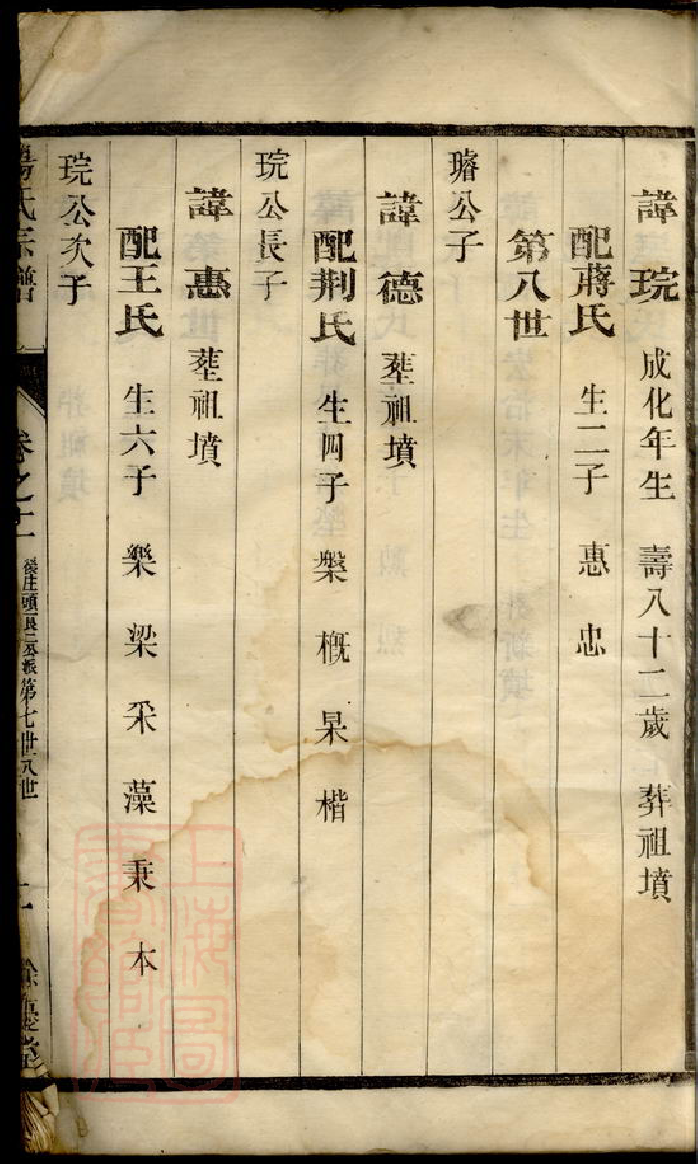 諱琓 成化年生 壽八十二歲 葬祖墳
配蔣氏 生二子 惠 忠
第八世
璿公子
諱德 塟祖墳
配荆氏 生四子 槃 概 杲 楷
琓公長子
諱惠 塟祖墳
配王氏 生六子 樂 梁 采 藻 秉 本
琓公次子
氏宗譜 卷之 後庄頭 公派第七世八世
上海圖